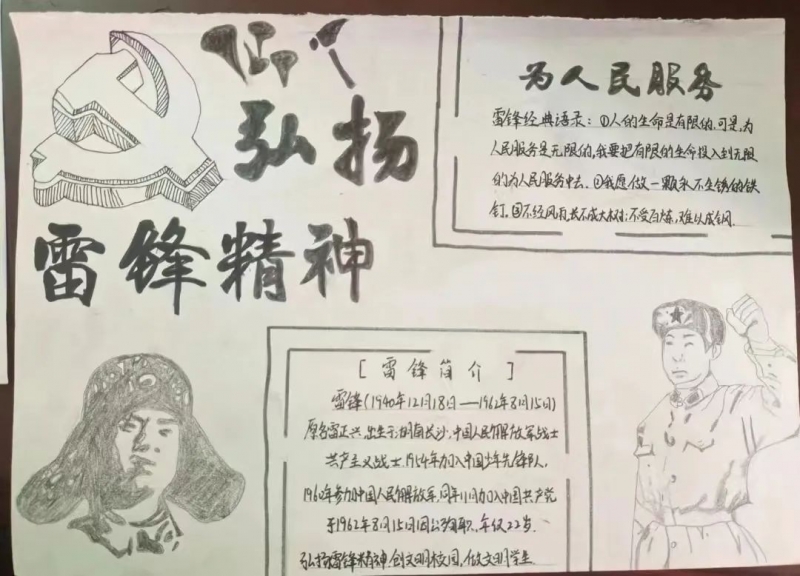 弘扬
雷锋精神
为人民服务
雷锋经典语录:①人的生命是有限的,可是,为
人民服务是无限的,我要把有限的生命投入到无限
的为人民服务中去。②我愿做一颗永不生锈的铁
钉。③不经风雨,长不成大树;不受百炼,难以成钢.
[雷锋简介]
雷锋(1940年12月18日——1962年8月15日)
原名雷正兴,出生于湖南长沙,中国人民解放军战士
共产主义战士,1954年加入中国少年先锋队,
1960年参加中国人民解放军,同年11月加入中国共产党
于1962年8月15日因公殉职,年仅22岁.
弘扬雷锋精神,创文明校园,做文明学生